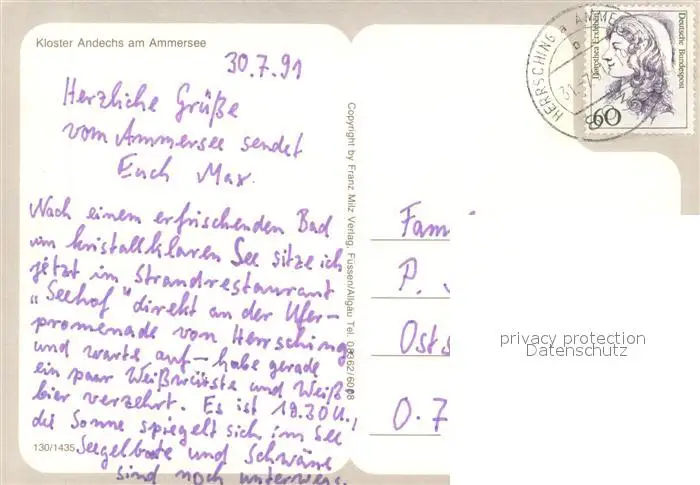 Kloster Andechs am Ammersee
30.7.91
Herzliche Grüße
vom Ammersee sendet
Euch Max.
Nach einem erfrischenden Bad
im kristallklaren See sitze ich
jetzt im Strandrestaurant
„Seehof" direkt an der Ufer-
promenade von Herrsching
und warte auf – habe gerade
ein paar Weißwürste und Weiß-
bier verzehrt. Es ist 19.30 U.,
die Sonne spiegelt sich im See
Seegelboote und Schwäne
sind noch unterwegs.
130/1435
Copyright by Franz Milz Verlag, Füssen/Allgäu Tel. 08362/6008
HERRSCHING a AMME
Deutsche Bundespost
Dorothea Erxleben
60
Fam
P.
Osts
O-7
privacy protection
Datenschutz